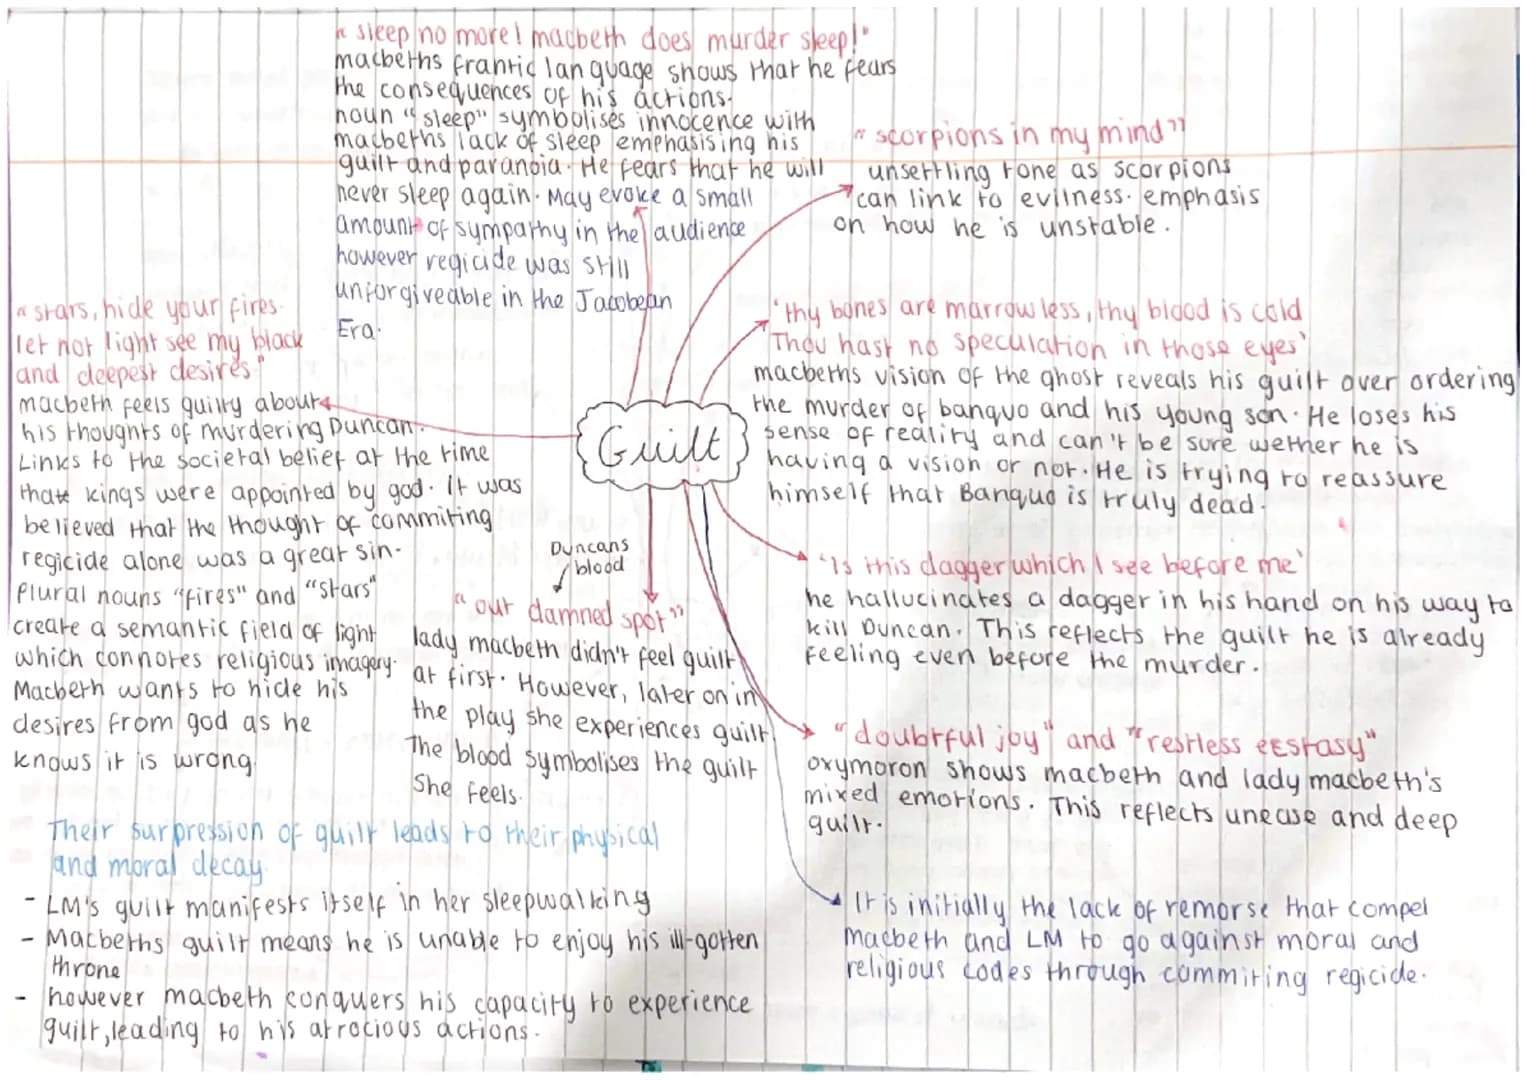 " sleep no more! macbeth does murder sleep!"
macbeths frantic language shows that he fears
the consequences of his actions.
noun "sleep" symbolises innocence with
macbeths lack of sleep emphasising his
guilt and paranoia. He fears that he will
never sleep again. May evoke a small
amount of sympathy in the audience
however regicide was still
unforgiveable in the Jacobean
Era.
"scorpions in my mind"
unsettling tone as scorpions
can link to evilness. emphasis
on how he is unstable.
"stars, hide your fires.
let not light see my black
and deepest desires."
macbeth feels guilty about
his thoughts of murdering Duncan.
Links to the societal belief at the time
that kings were appointed by god. it was
believed that the thought of commiting
regicide alone was a great sin.
Plural nouns "fires" and "stars"
create a semantic field of light
which connotes religious imagery.
Macbeth wants to hide his
desires from god as he
knows it is wrong.
'thy bones are marrowless, thy blood is cold
Thou hast no speculation in those eyes'
macbeths vision of the ghost reveals his guilt over ordering
the murder of banquo and his young son. He loses his
sense of reality and can't be sure wether he is
having a vision or not. He is trying to reassure
himself that Banquo is truly dead.
Guilt
'Is this dagger which I see before me'
he hallucinates a dagger in his hand on his way to
kill Duncan. This reflects the guilt he is already
feeling even before the murder.
Duncans
blood
"out damned spot"
lady macbeth didn't feel guilt
at first. However, later on in
the play she experiences guilt.
The blood symbolises the guilt
She feels.
"doubtful joy" and "restless ecstasy"
oxymoron shows macbeth and lady macbeth's
mixed emotions. This reflects unease and deep
guilt.
Their surpression of guilt leads to their physical
and moral decay
- LM's guilt manifests itself in her sleepwalking
- Macbeths guilt means he is unable to enjoy his ill-gotten
throne
- however macbeth conquers his capacity to experience
guilt, leading to his atrocious actions.
It is initially the lack of remorse that compel
macbeth and LM to go against moral and
religious codes through commiting regicide.